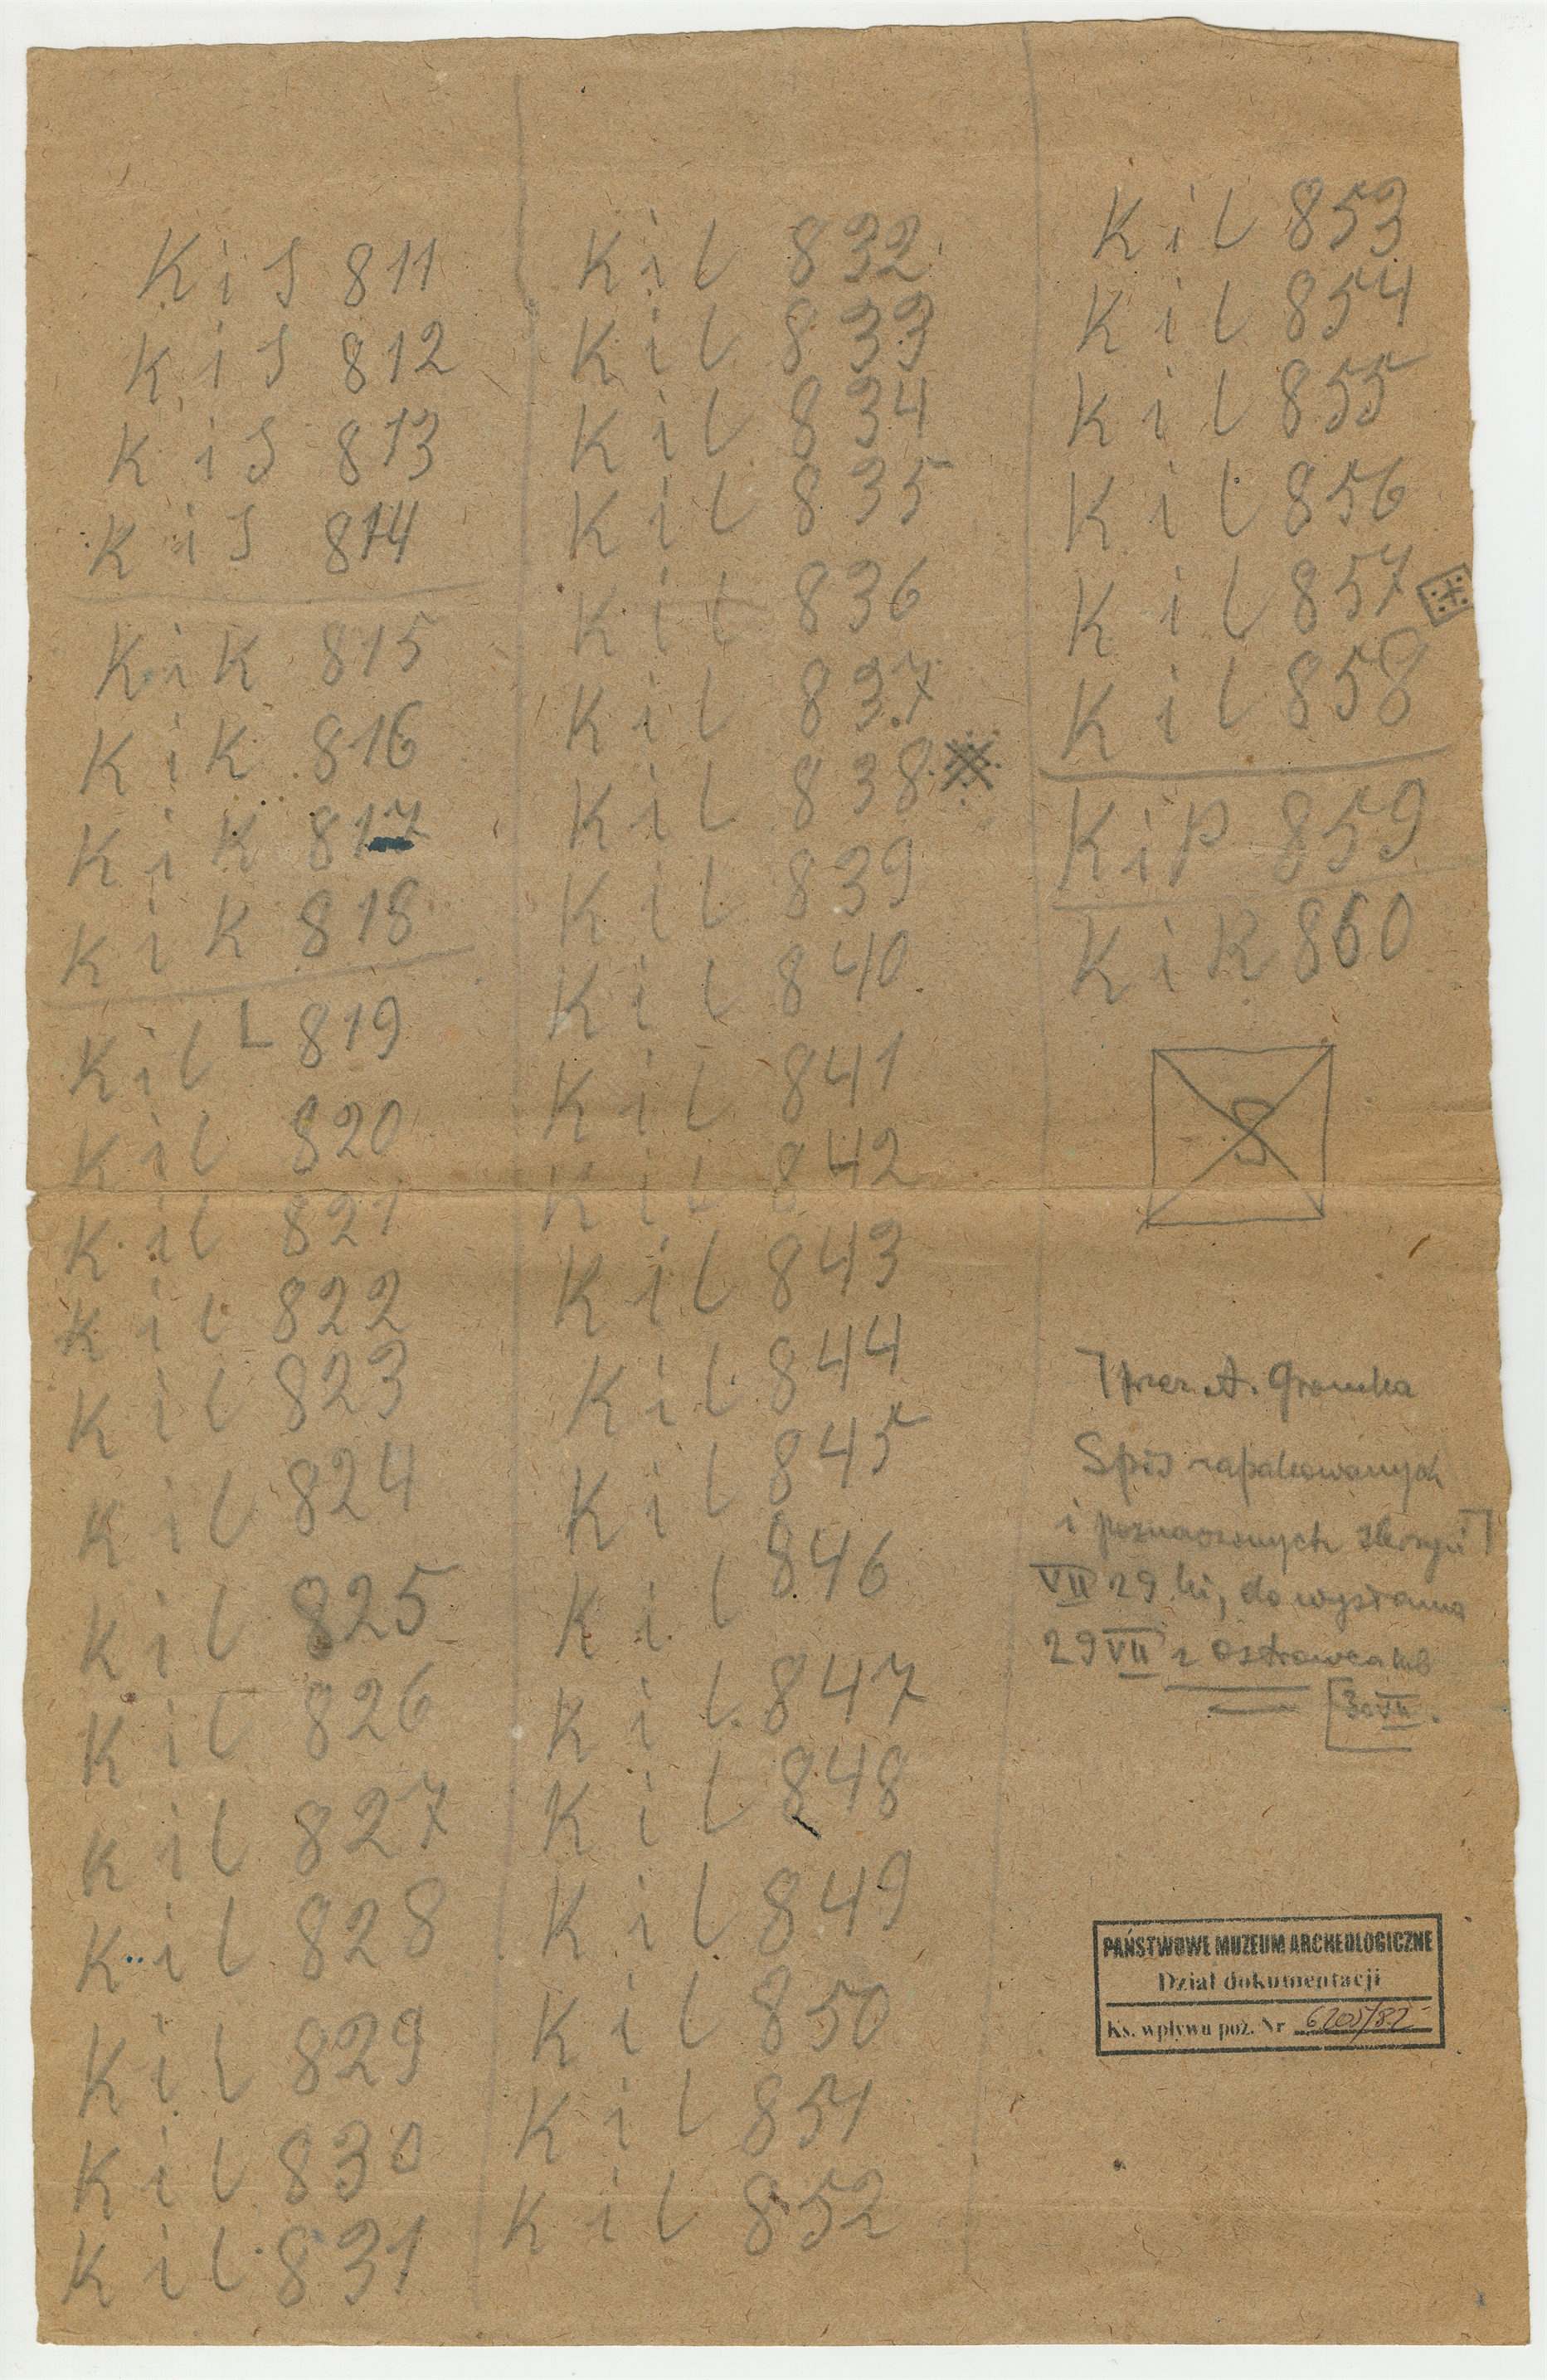 K i S 811
K i S 812
K i S 813
K i S 814
K i K 815
K i K 816
K i K 817
K i K 818
K i l L 819
K i l 820
K i l 821
K i l 822
K i l 823
K i l 824
K i l 825
K i l 826
K i l 827
K i l 828
K i l 829
K i l 830
K i l 831
K i l 832
K i l 833
K i l 834
K i l 835
K i l 836
K i l 837
K i l 838
K i l 839
K i l 840
K i l 841
K i l 842
K i l 843
K i l 844
K i l 845
K i l 846
K i l 847
K i l 848
K i l 849
K i l 850
K i l 851
K i l 852
K i l 853
K i l 854
K i l 855
K i l 856
K i l 857
K i l 858
K i P 859
K i R 860
S
[przez A.
Spis zapakowanych
i poznaczonych skrzyń]
VII 29 do wysłania
29 VII z Ostrowca lub
30 VII.
PAŃSTWOWE MUZEUM ARCHEOLOGICZNE
Dział dokumentacji
Ks. wpływu poz. Nr 6205/82